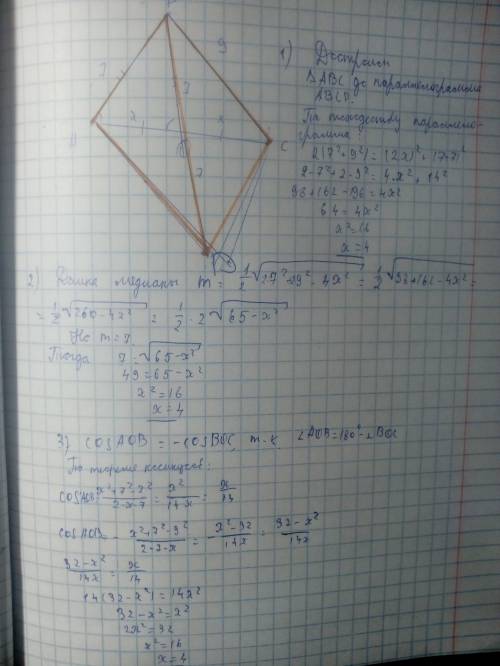 B
9
7
7
x
x
7
C
1) Достроим
ΔABC до параллелограмма
ABCD.
По тождеству параллело-
грамма:
2(7²+9²)=(2x)²+(7+7)²
2·7²+2·9²=4·x²+14²
98+162-196=4x²
64=4x²
x²=16
x=4
2) Длина медианы m = 1/2 √(2·7²+2·9²-4x²) = 1/2 √(98+162-4x²) =
= 1/2 √(260-4x²) = 1/2 · 2 √(65-x²)
Но m=7
Тогда 7=√(65-x²)
49=65-x²
x²=16
x=4
3) cos AOB = -cos BOC, т.к. ∠AOB=180°-∠BOC
По теореме косинусов:
cos AOB = (x²+7²-7²)/(2·x·7) = x²/(14·x) = x/14
cos AOB = - (x²+7²-9²)/(2·7·x) = - (x²-32)/(14x) = (32-x²)/(14x)
(32-x²)/(14x) = x/14
14(32-x²)=14x²
32-x²=x²
2x²=32
x²=16
x=4